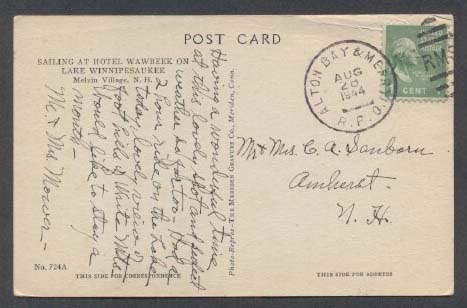 POST CARD
SAILING AT HOTEL WAWBEEK ON
LAKE WINNIPESAUKEE
Melvin Village, N. H.
Having a wonderful time
at this lovely spot and select
weather so far too – Had a
2 hour ride on the Lake
today, lovely view of
foot hills of White Mts.
Would like to stay a
month –
Mr. & Mrs. Mower –
Photo-Reprlet–THE MERIDEN GRAVURE CO., Meriden, Conn.
No. 724A
THIS SIDE FOR CORRESPONDENCE
ALTON BAY & MERR
AUG
28
1944
R.P.O.
CENT
RM
Mr & Mrs. C. A. Sanborn
Amherst.
N. H.
THIS SIDE FOR ADDRESS